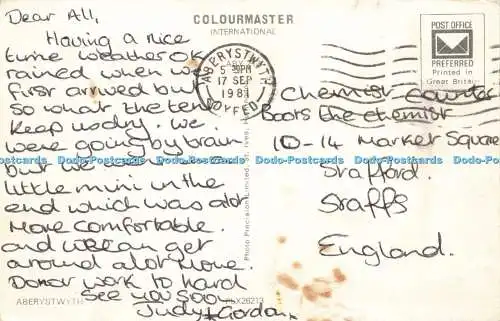 Dear All,
Having a nice
time weather ok
rained when we
first arrived but
so what the tent
keep us dry. we
were going by train
but we
little mini in the
end which was alot
more comfortable.
and we can get
around alot more.
Donor work to hard
see you soon
Judy & Gordon x
ABERYSTWYTH
PLX26213
COLOURMASTER
INTERNATIONAL
Photo Precision Limited, St. Ives,
ABERYSTWYTH
5 30PM
17 SEP
1981
DYFED
POST OFFICE
PREFERRED
Printed in
Great Britain
Chemist Counter
Boots the chemist
10-14 Market Square
Stafford.
Staffs
England.
Judo-Postcards Judo-Postcards Judo-Postcards Judo-Postcards